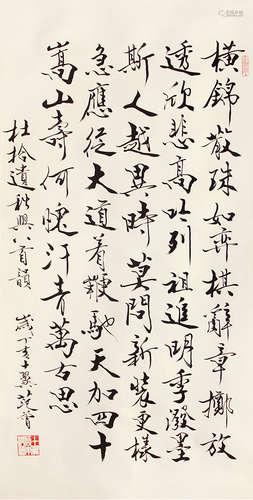 橫錦散珠如弈棋辭章擲放
透欣悲高吟列祖進明季潑墨
斯人越異時莫問新裝更樣
急應從大道着鞭馳天加四十
嵩山壽何愧汗青萬古思
杜拾遺秋興八首韻 歲丁亥十翼范曾